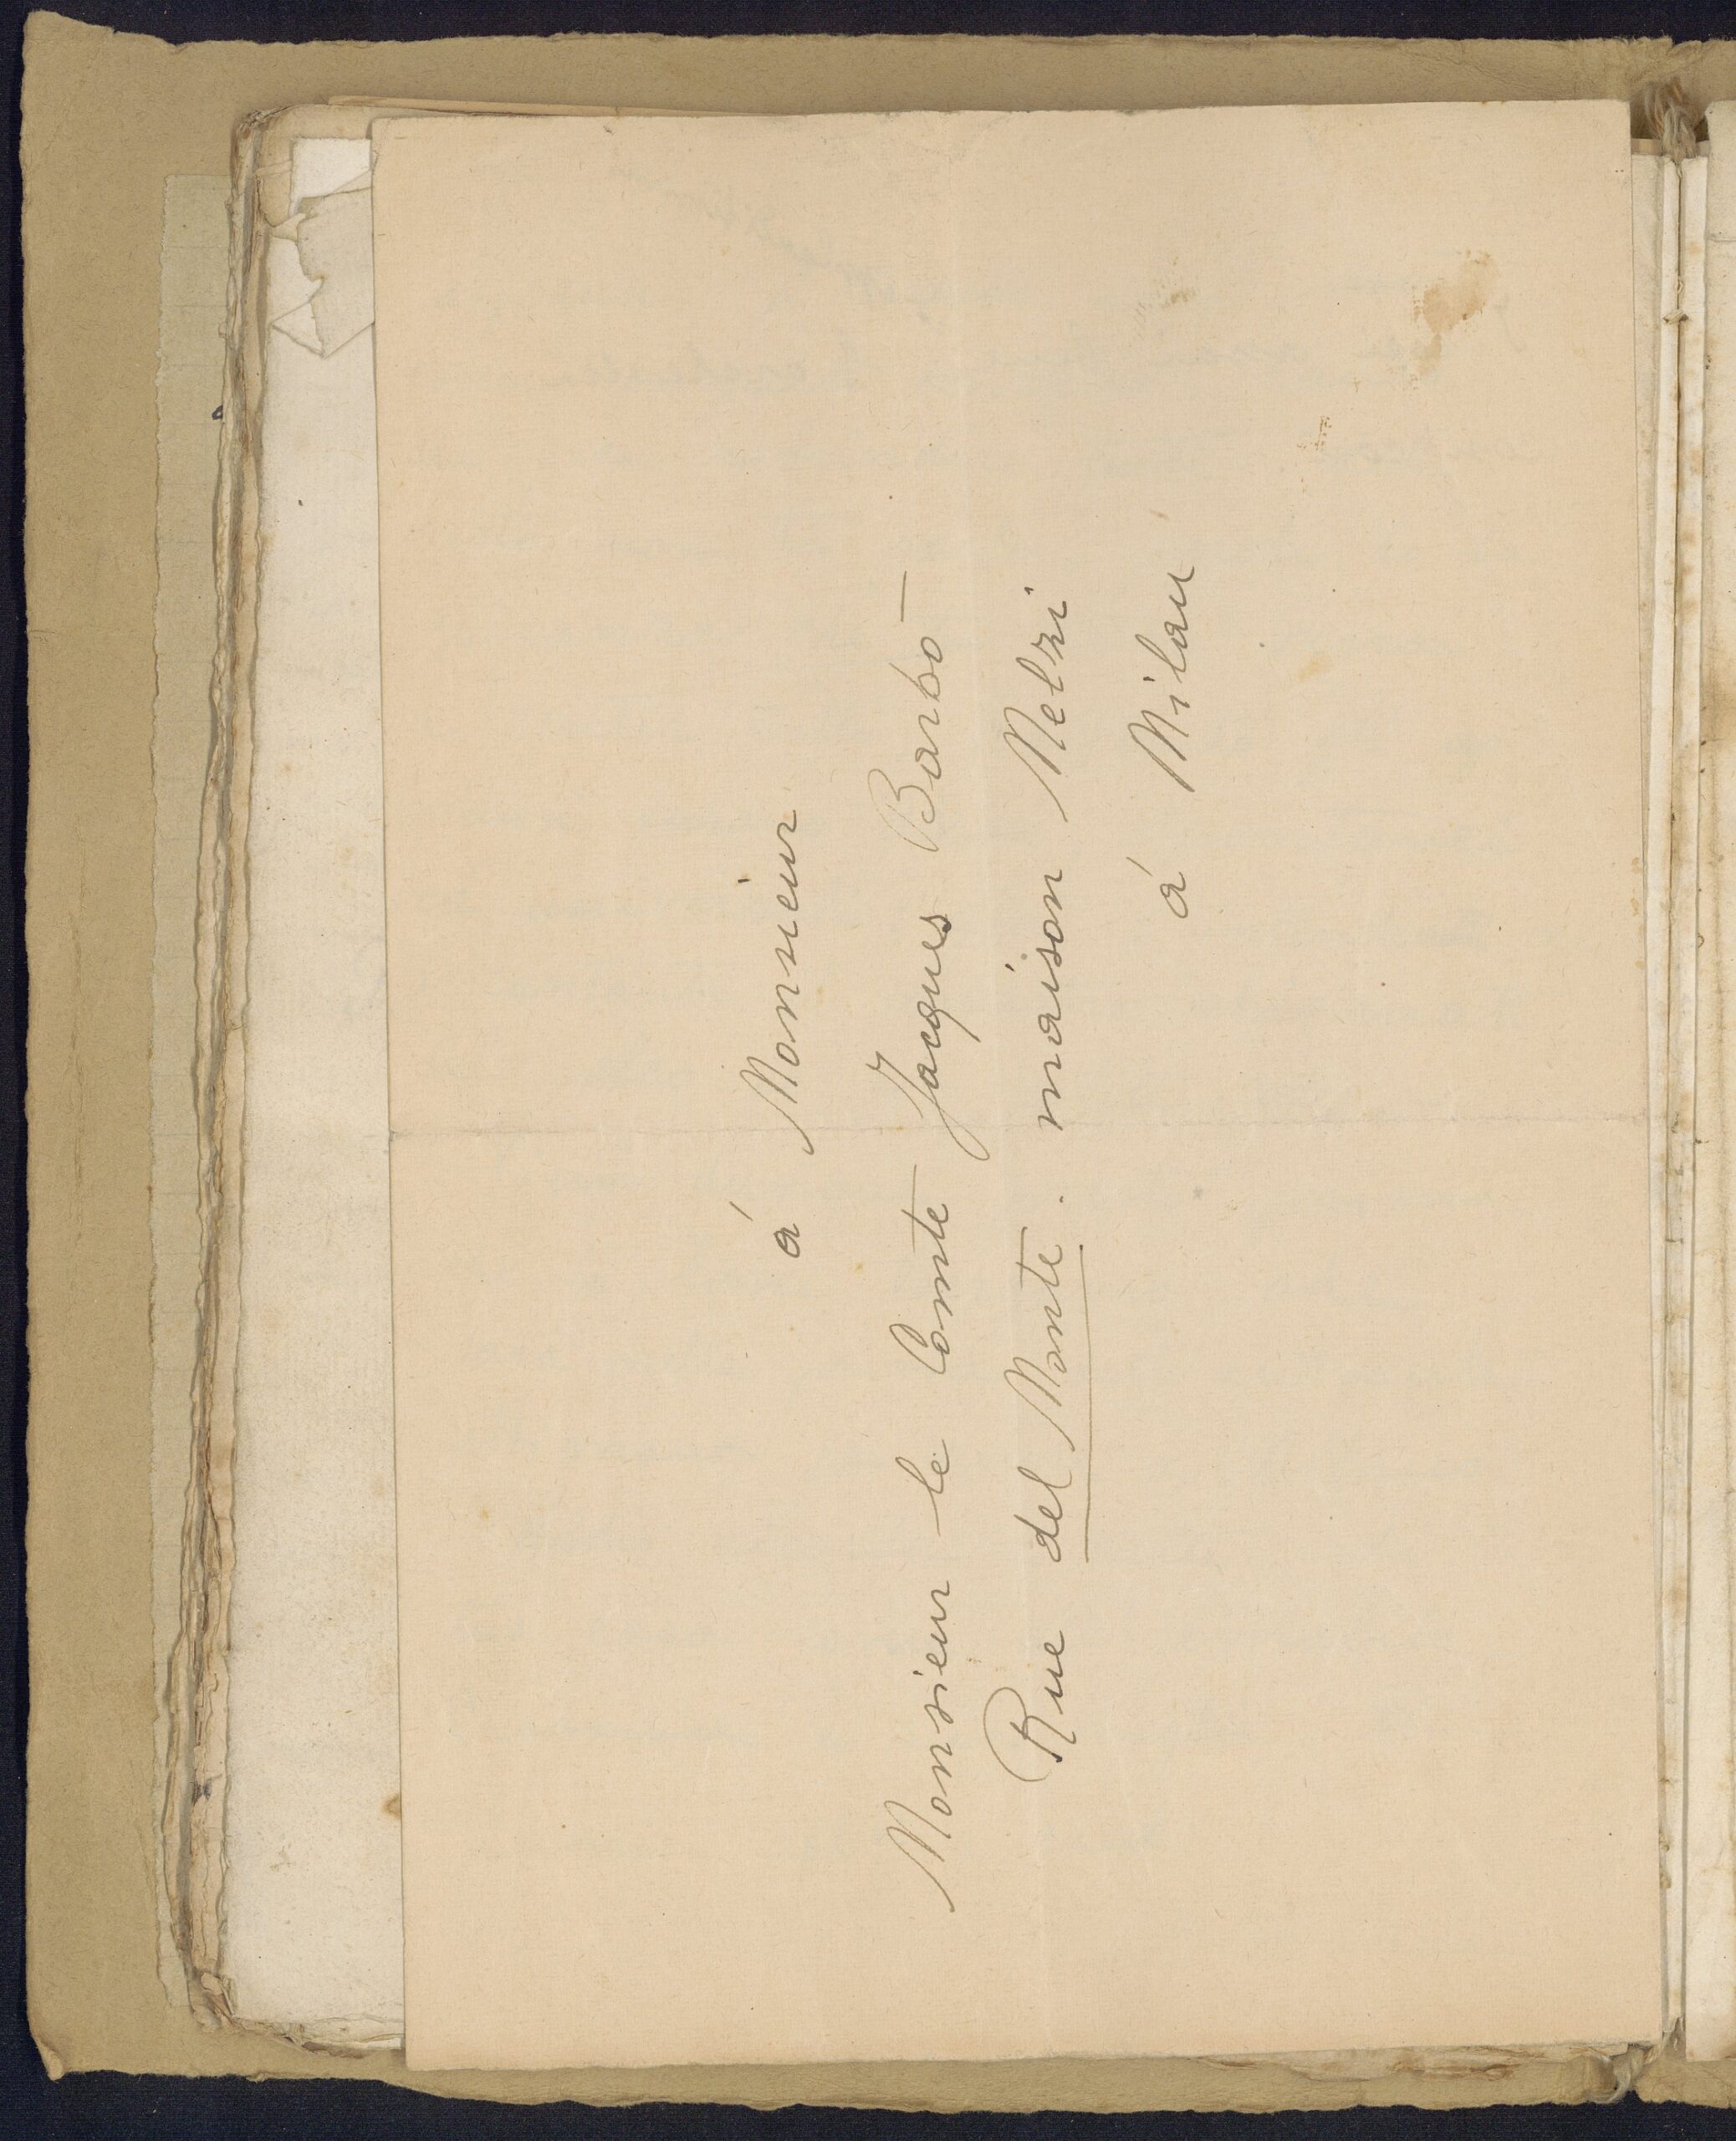 á Monsieur
Monsieur le Comte Jacques Barbò
Rue del Monte. maison Melzi
á Milan